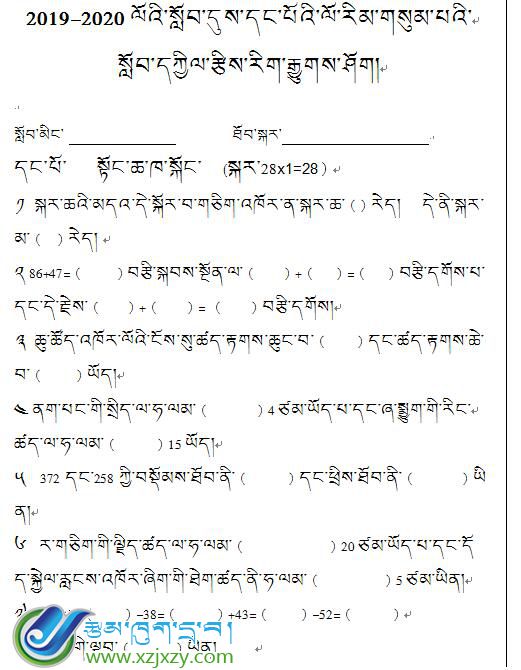 2019–2020 ལོའི་སློབ་དུས་དང་པོའི་ལོ་རིམ་གསུམ་པའི་
སློབ་དཀྱིལ་རྩིས་རིག་རྒྱུགས་ཤོག།
སློབ་མིང་ ____________ ཐོབ་སྐར་____________
དང་པོ་ སྟོང་ཆ་ཁ་སྐོང་ (སྐར་28x1=28）
༡ སྐར་ཆའི་མདའ་དེ་སྐོར་བ་གཅིག་འཁོར་ན་སྐར་ཆ་（ ）རེད། དེ་ནི་སྐར་
མ་（ ）རེད།
༢ 86+47=（ ）བརྩི་སྐབས་སྔོན་ལ་（ ）+（ ）=（ ）བརྩི་དགོས་པ་
དང་དེ་རྗེས་（ ）+（ ）=（ ）བརྩི་དགོས།
༣ ཆུ་ཚོད་འཁོར་ལོའི་ངོས་སུ་ཚད་རྟགས་ཆུང་བ་（ ）དང་ཚད་རྟགས་ཆེ་
བ་（ ）ཡོད།
༤ ནག་པང་གི་སྲིད་ལ་ཧ་ལམ་（ ）4 ཙམ་ཡོད་པ་དང་ཞ་སྨྱུག་གི་རིང་
ཚད་ལ་ཧ་ལམ་（ ）15 ཡོད།
༥ 372 དང་258 ཀྱི་བསྡོམས་ཐོབ་ནི་（ ）དང་ཕྲིས་ཐོབ་ནི་（ ）ཡི
ན།
༦ ར་གཅིག་གི་ལྗིད་ཚད་ལ་ཧ་ལམ་（ ）20 ཙམ་ཡོད་པ་དང་དོ
ད་སྐྱེལ་རླངས་འཁོར་ཞིག་གི་ཐེག་ཚད་ནི་ཧ་ལམ་（ ）5 ཙམ་ཡིན།
༧ ）–38=（ ）+43=（ ）–52=（ ）
རྩོམ་ཁུག་དྲ་བ།
གི་ལྡབ་（ ）ཡིན།
www.xzjxzy.com